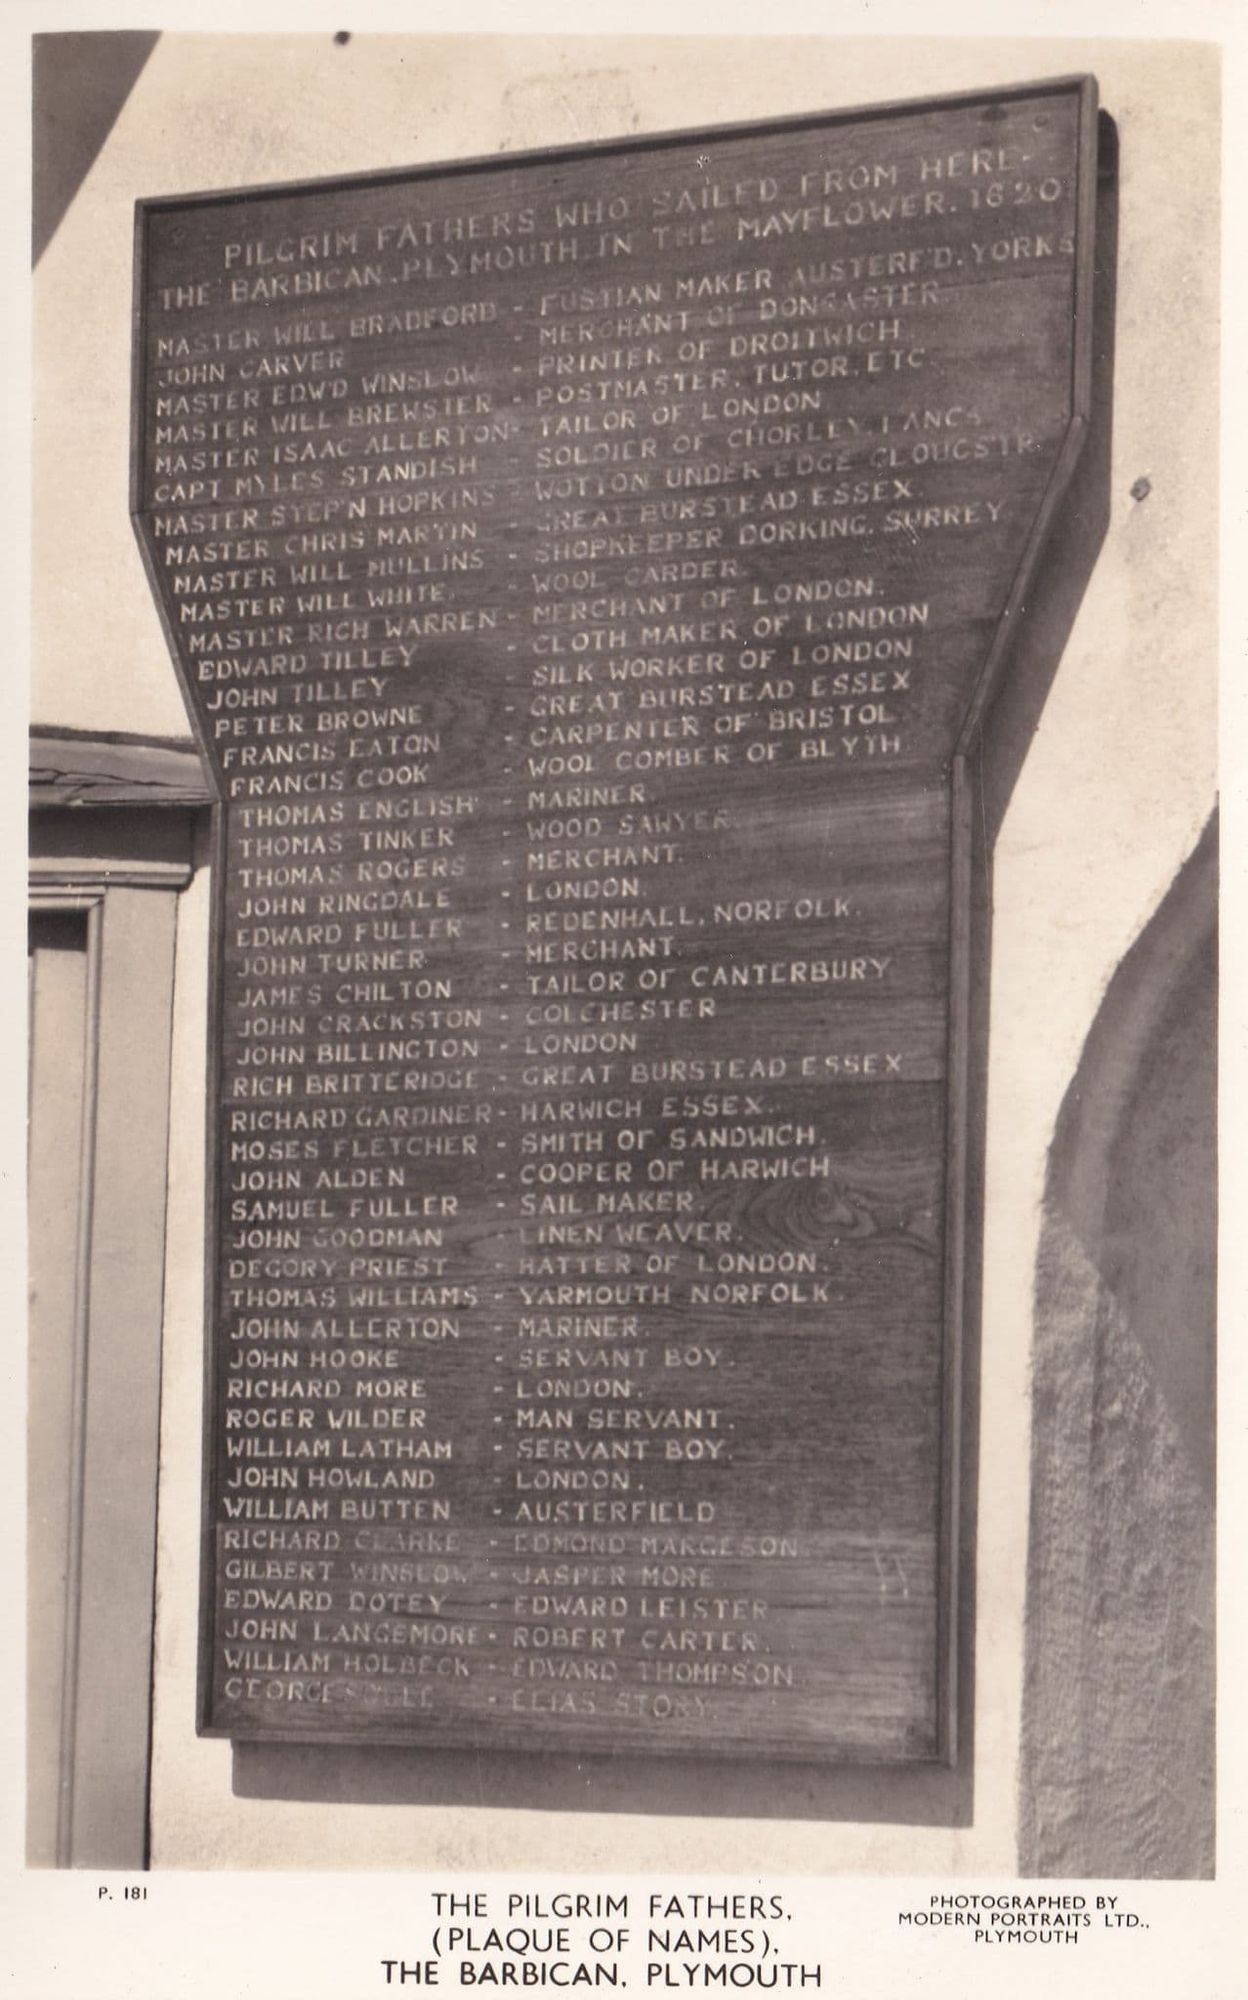 PILGRIM FATHERS WHO SAILED FROM HERE-
THE BARBICAN. PLYMOUTH IN THE MAYFLOWER. 1620
MASTER WILL BRADFORD - FUSTIAN MAKER AUSTERF'D. YORKS
JOHN CARVER - MERCHANT OF DONCASTER
MASTER EDW'D WINSLOW - PRINTER OF DROITWICH
MASTER WILL BREWSTER - POSTMASTER, TUTOR, ETC
MASTER ISAAC ALLERTON - TAILOR OF LONDON
CAPT MYLES STANDISH - SOLDIER OF CHORLEY LANCS
MASTER STEP'N HOPKINS - WOTTON UNDER EDGE GLOUCSTR
MASTER CHRIS MARTIN - GREAT BURSTEAD ESSEX.
MASTER WILL MULLINS - SHOPKEEPER DORKING. SURREY
MASTER WILL WHITE. - WOOL CARDER.
MASTER RICH WARREN - MERCHANT OF LONDON.
EDWARD TILLEY - CLOTH MAKER OF LONDON
JOHN TILLEY - SILK WORKER OF LONDON
PETER BROWNE - GREAT BURSTEAD ESSEX
FRANCIS EATON - CARPENTER OF BRISTOL
FRANCIS COOK - WOOL COMBER OF BLYTH.
THOMAS ENGLISH - MARINER.
THOMAS TINKER - WOOD SAWYER.
THOMAS ROGERS - MERCHANT.
JOHN RINGDALE - LONDON.
EDWARD FULLER - REDENHALL, NORFOLK.
JOHN TURNER - MERCHANT.
JAMES CHILTON - TAILOR OF CANTERBURY
JOHN CRACKSTON - COLCHESTER
JOHN BILLINGTON - LONDON
RICH BRITTERIDGE - GREAT BURSTEAD ESSEX
RICHARD GARDINER - HARWICH ESSEX.
MOSES FLETCHER - SMITH OF SANDWICH.
JOHN ALDEN - COOPER OF HARWICH
SAMUEL FULLER - SAIL MAKER.
JOHN GOODMAN - LINEN WEAVER.
DEGORY PRIEST - HATTER OF LONDON.
THOMAS WILLIAMS - YARMOUTH NORFOLK.
JOHN ALLERTON - MARINER.
JOHN HOOKE - SERVANT BOY.
RICHARD MORE - LONDON.
ROGER WILDER - MAN SERVANT.
WILLIAM LATHAM - SERVANT BOY.
JOHN HOWLAND - LONDON.
WILLIAM BUTTEN - AUSTERFIELD
RICHARD CLARKE - EDMOND MARGESON
GILBERT WINSLOW - JASPER MORE.
EDWARD DOTEY - EDWARD LEISTER
JOHN LANGEMORE - ROBERT CARTER.
WILLIAM HOLBECK - EDWARD THOMPSON
GEORGE - ELIAS STORY.
P. 181
THE PILGRIM FATHERS,
(PLAQUE OF NAMES),
THE BARBICAN, PLYMOUTH
PHOTOGRAPHED BY
MODERN PORTRAITS LTD.,
PLYMOUTH